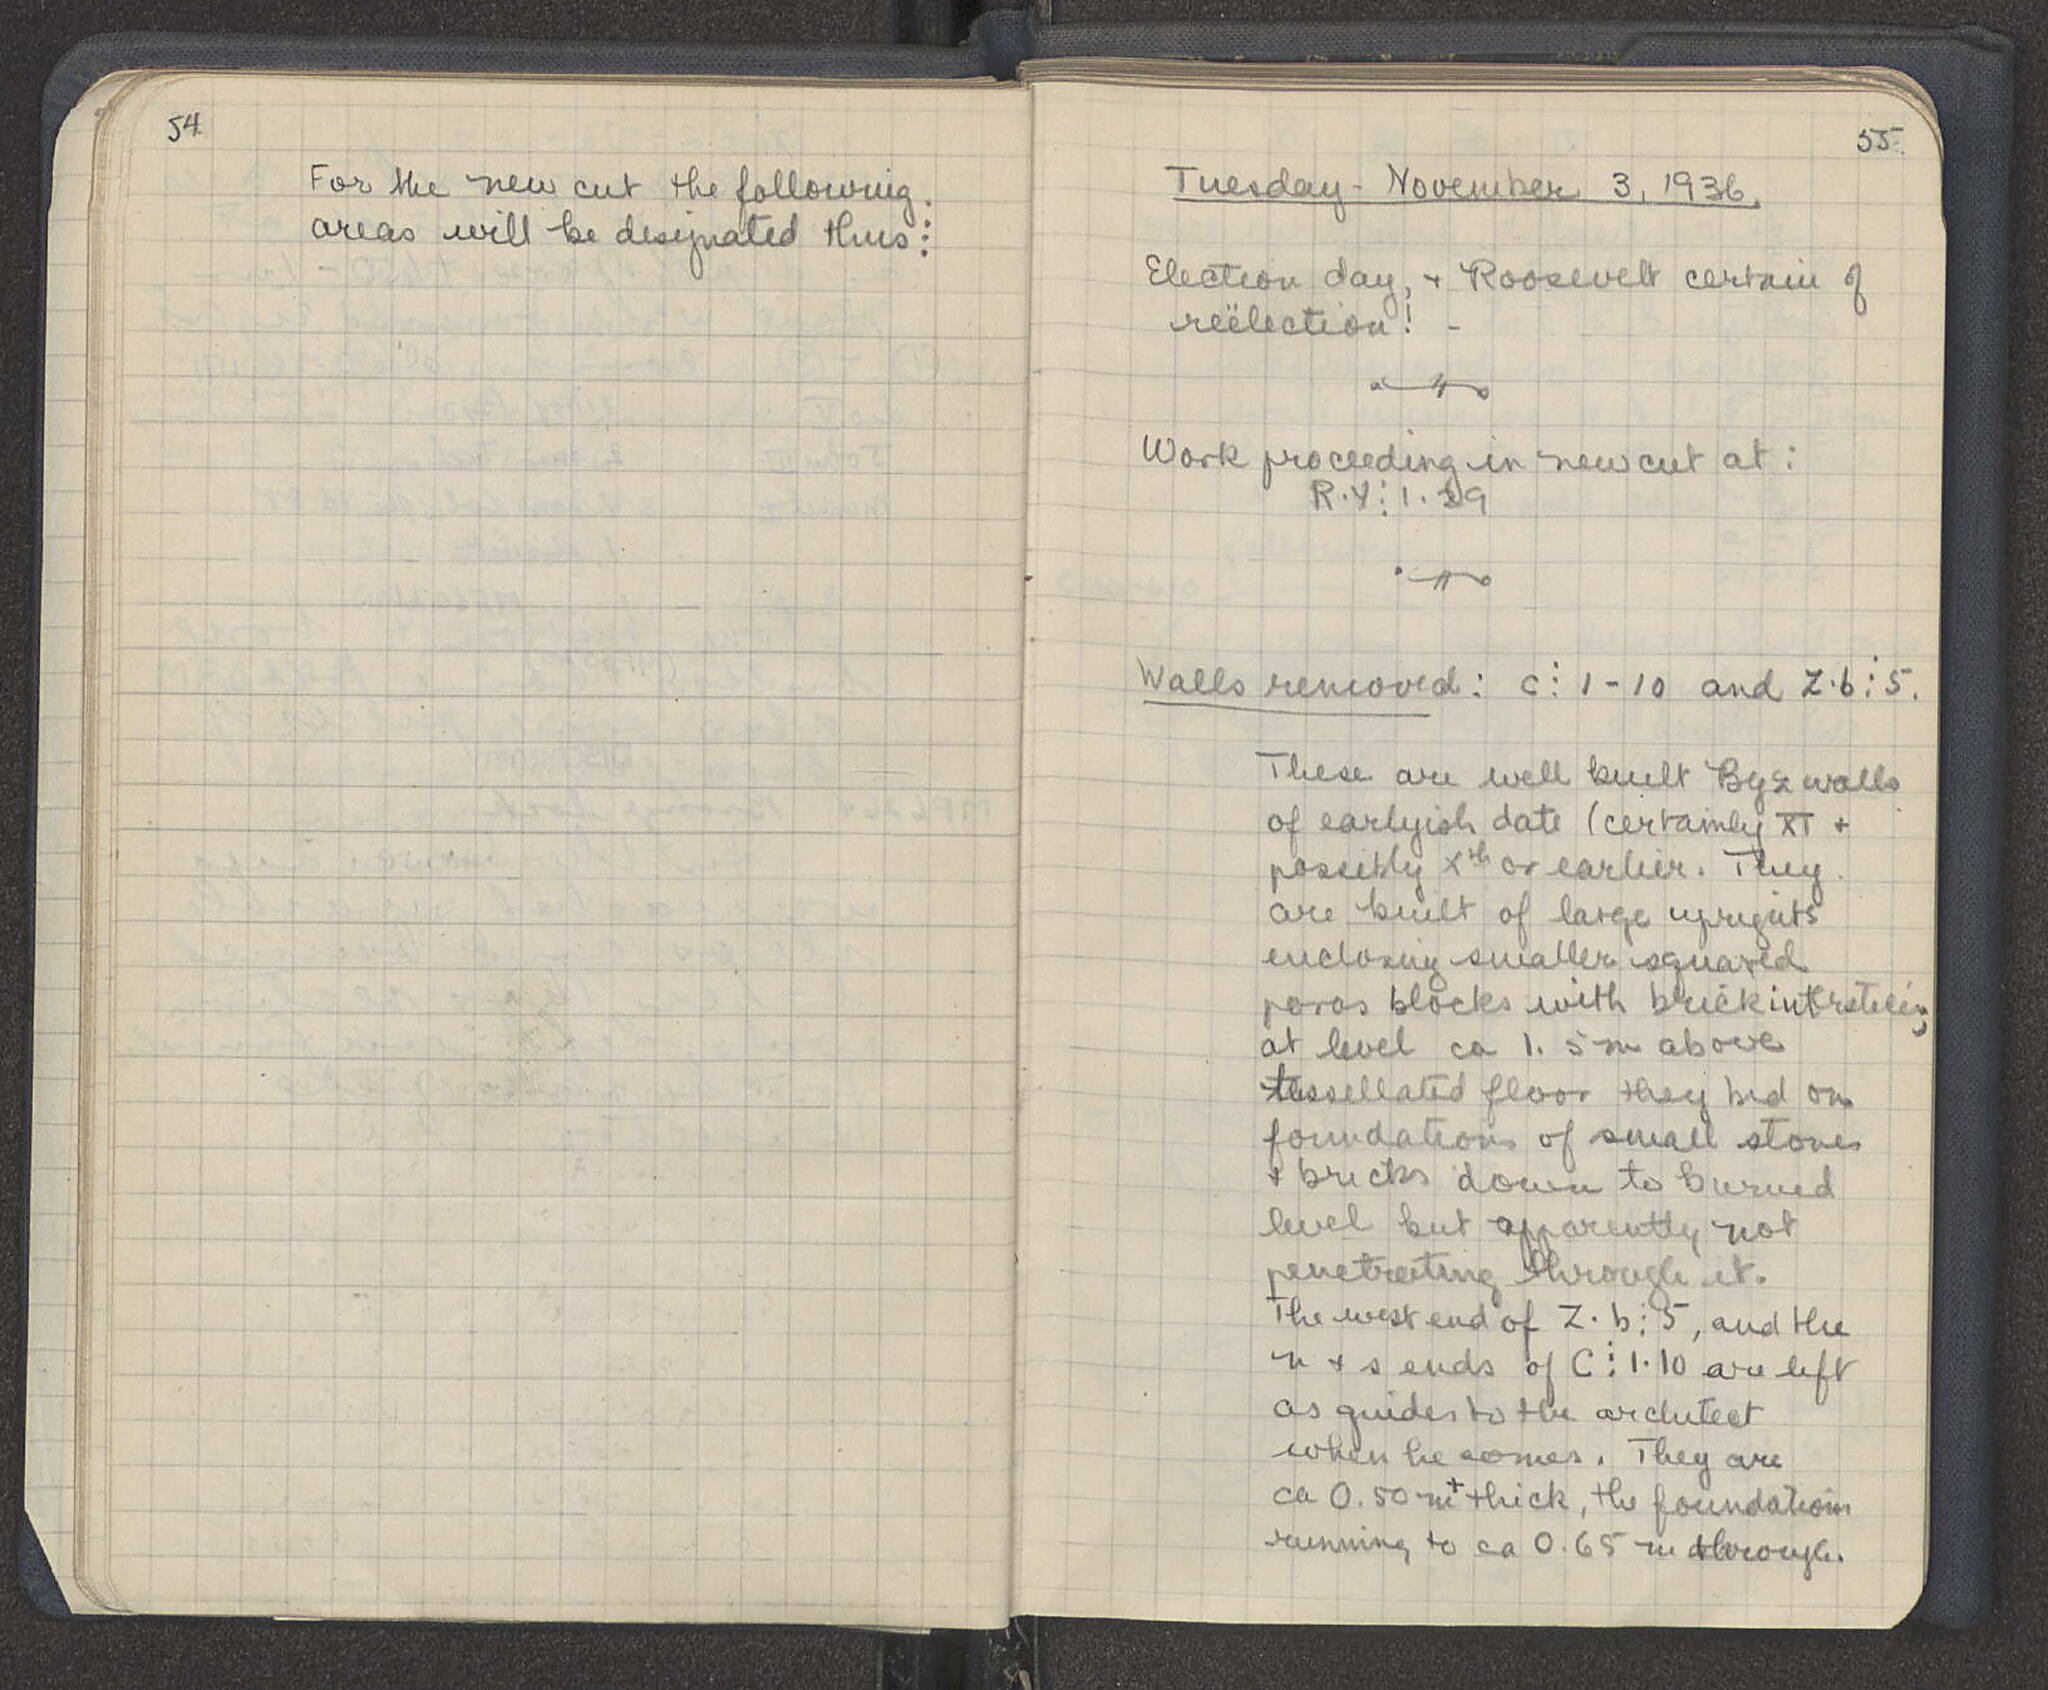 54
For the new cut the following
areas will be designated thus:
55.
Tuesday - November 3, 1936.
Election day, + Roosevelt certain of
reëlection! -
Work proceeding in new cut at:
R.Y⋮1.29
Walls removed: C⋮1-10 and Z.b⋮5.
These are well built Byz walls
of earlyish date (certainly XI +
possibly Xth or earlier. They
are built of large uprights
enclosing smaller squared
poros blocks with brick
at level ca 1.5 m above
tessellated floor they bed on
foundations of small stones
+ bricks down to burned
level but apparently not
penetrating through it.
The west end of Z.b⋮5, and the
n + s ends of C⋮1.10 are left
as guides to the architect
when he comes. They are
ca 0.50 m± thick, the foundations
running to ca 0.65 m through.